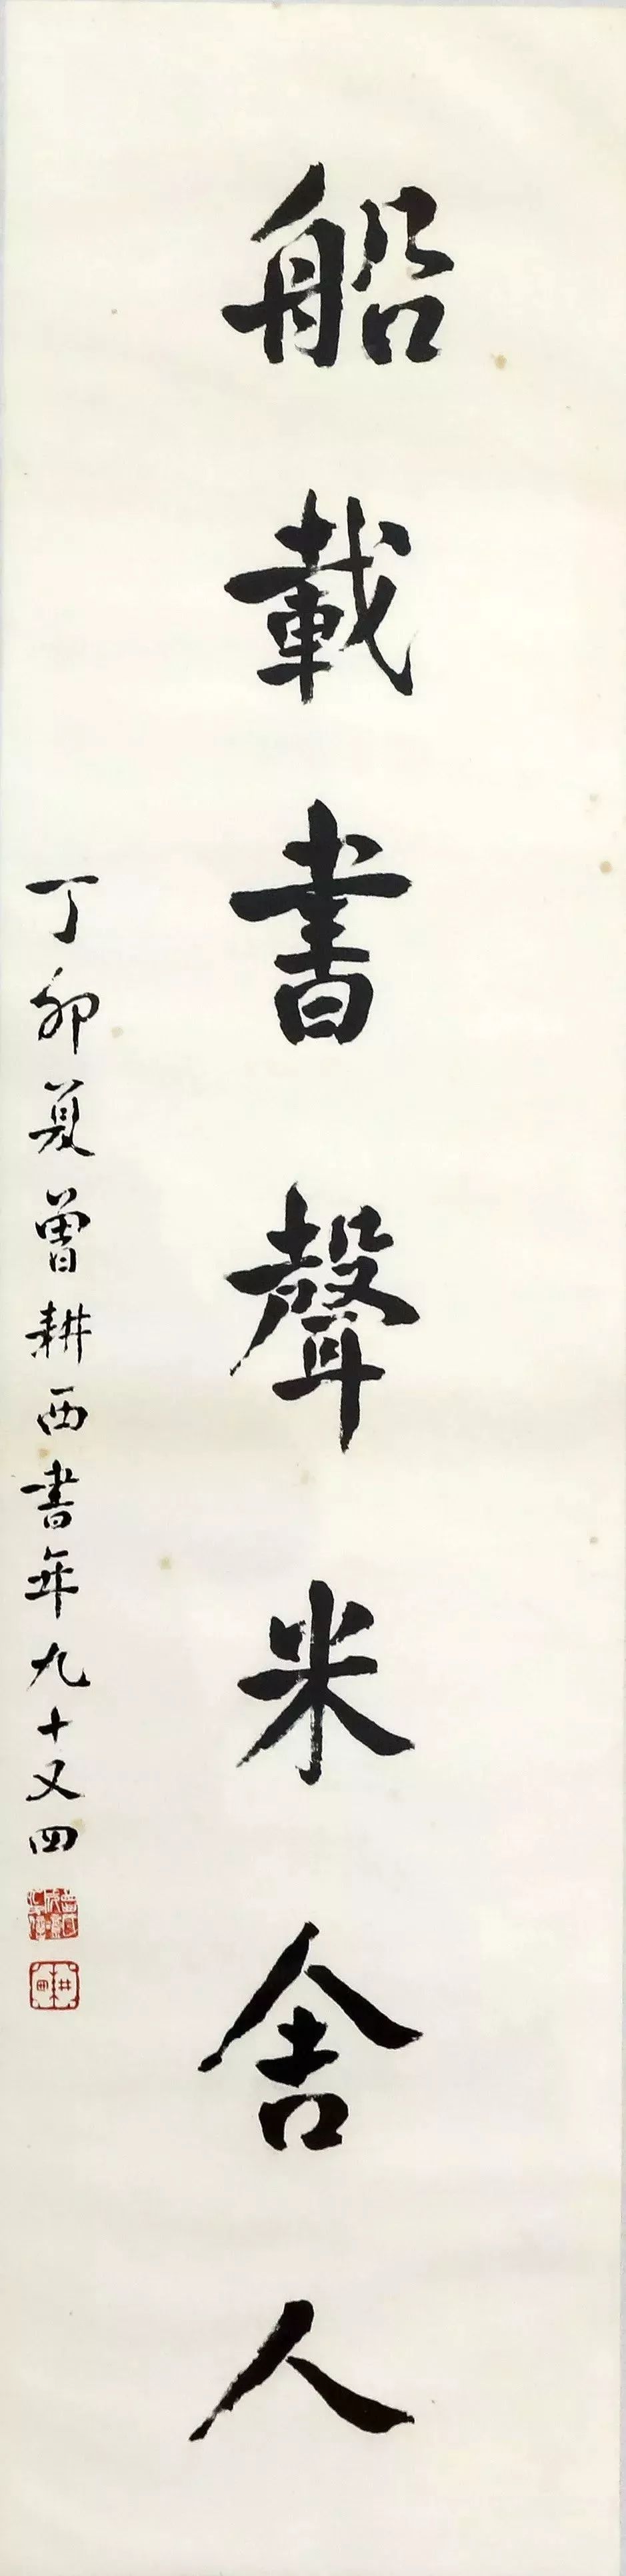 船載書聲米舍人
丁卯夏曾耕西書年九十又四